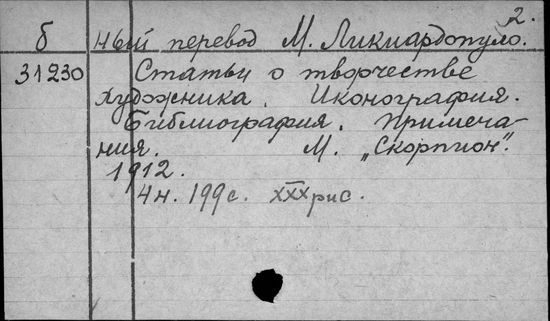 2.
б ный перевод М. Ликиардопуло.
31230 Статьи о творчестве
художника. Иконография.
Библиография. Примеча-
ния. М. „Скорпион".
1912.
4 н. 199 с. XXX рис.